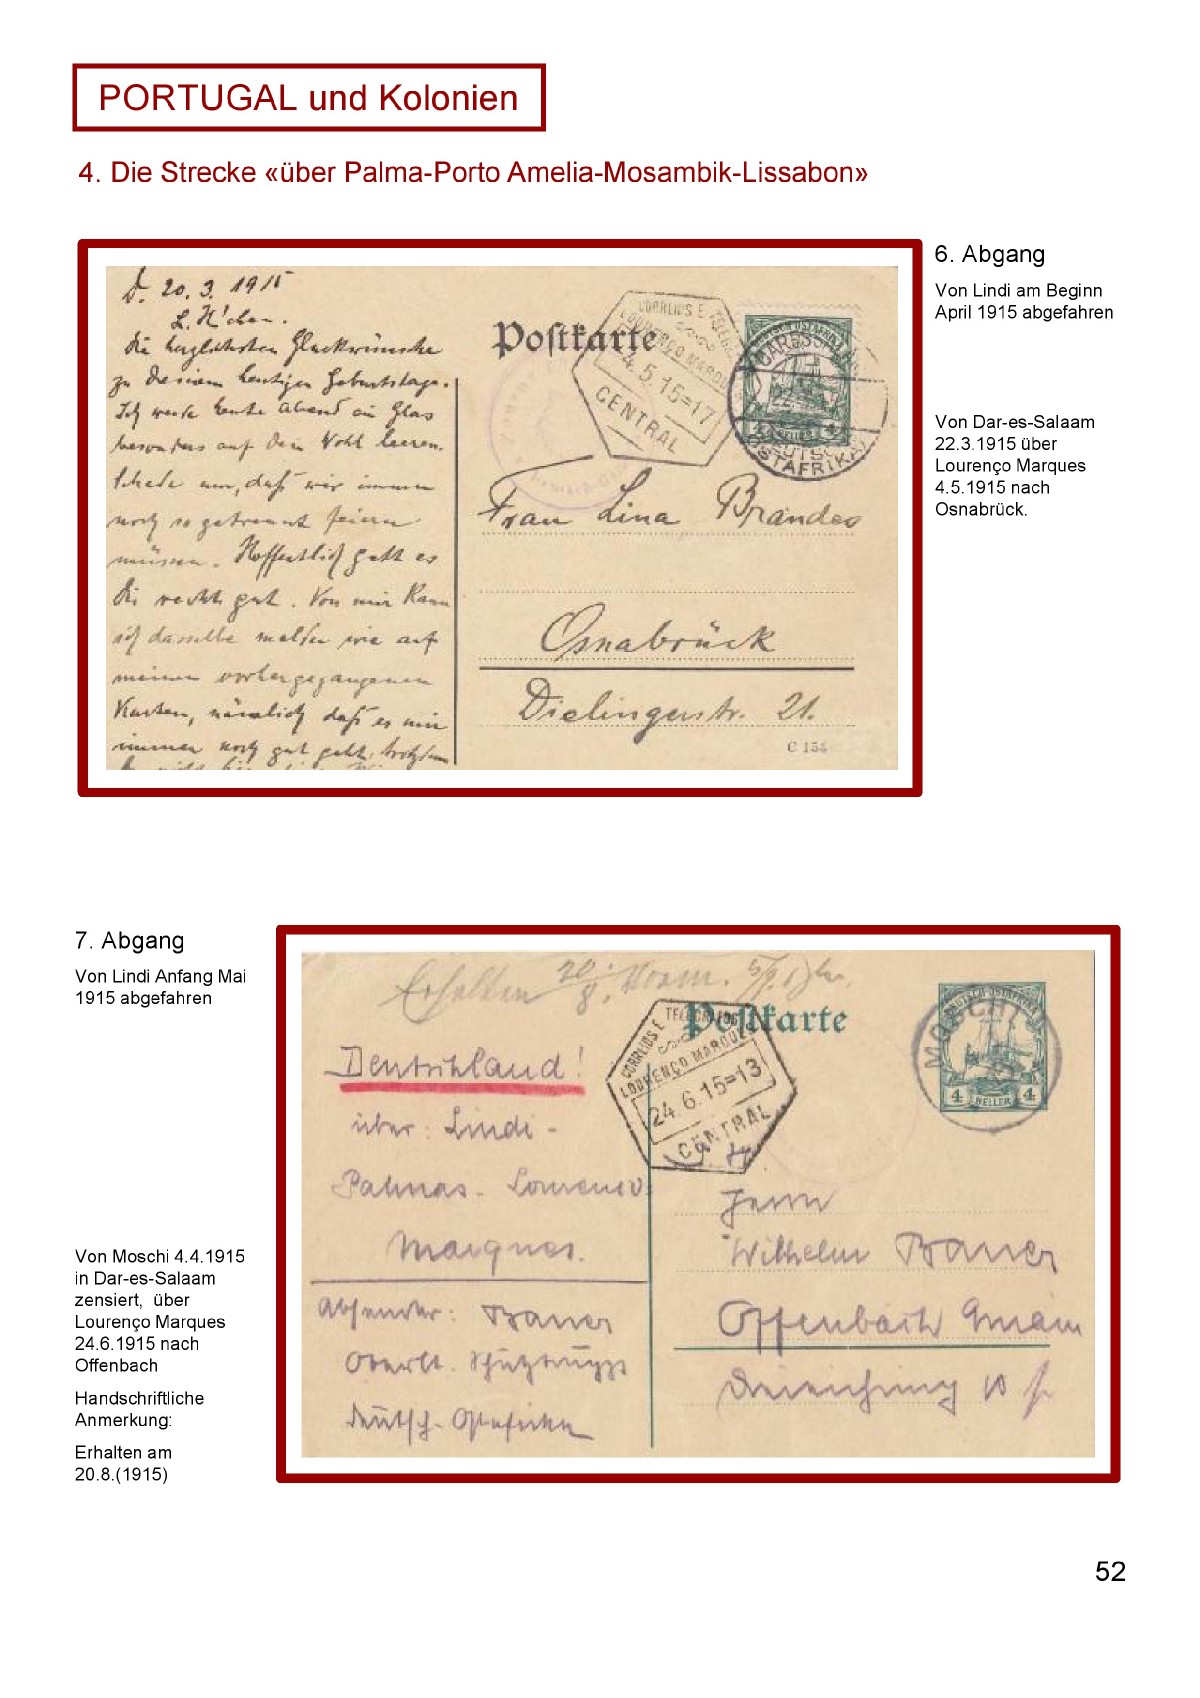 PORTUGAL und Kolonien
4. Die Strecke «über Palma-Porto Amelia-Mosambik-Lissabon»
D. 20. 3. 1915
Die herzlichsten Glückwünsche
zu Deinem heutigen Geburtstage.
Ich werde heute Abend ein Glas
besonders auf Dein Wohl leeren.
Schade nur, daß wir immer
noch so getrennt feiern
müssen. Hoffentlich geht es
Dir recht gut. Von mir kann
ich dasselbe melden wie auf
meinen vorhergegangenen
Karten, nämlich daß es mir
immer noch gut geht, trotzdem
Postkarte
CORREIOS E TELEG
LOURENÇO MARQU
4.5.15=17
CENTRAL
DEUTSCH OSTAFRIKA
DARESSALAM
22
4 HELLER 4
DEUTSCH
OSTAFRIKA
Frau Lina Brandes
Osnabrück
Dielingerstr. 21.
C 154
6. Abgang
Von Lindi am Beginn
April 1915 abgefahren
Von Dar-es-Salaam
22.3.1915 über
Lourenço Marques
4.5.1915 nach
Osnabrück.
7. Abgang
Von Lindi Anfang Mai
1915 abgefahren
Von Moschi 4.4.1915
in Dar-es-Salaam
zensiert, über
Lourenço Marques
24.6.1915 nach
Offenbach
Handschriftliche
Anmerkung:
Erhalten am
20.8.(1915)
Erhalten 20/8. Vorm.
Postkarte
Deutschland!
über: Lindi -
Palmas - Lourenco
Marques.
Absender: Bauer
Oberlt. Schutztruppe
Deutsch-Ostafrika
CORREIOS E TELEGRAFOS
LOURENÇO MARQUES
24.6.15=13
CENTRAL
DEUTSCH-OSTAFRIKA
MOSCHI
4 HELLER 4
Herrn
Wilhelm Bauer
Offenbach a/Main
52